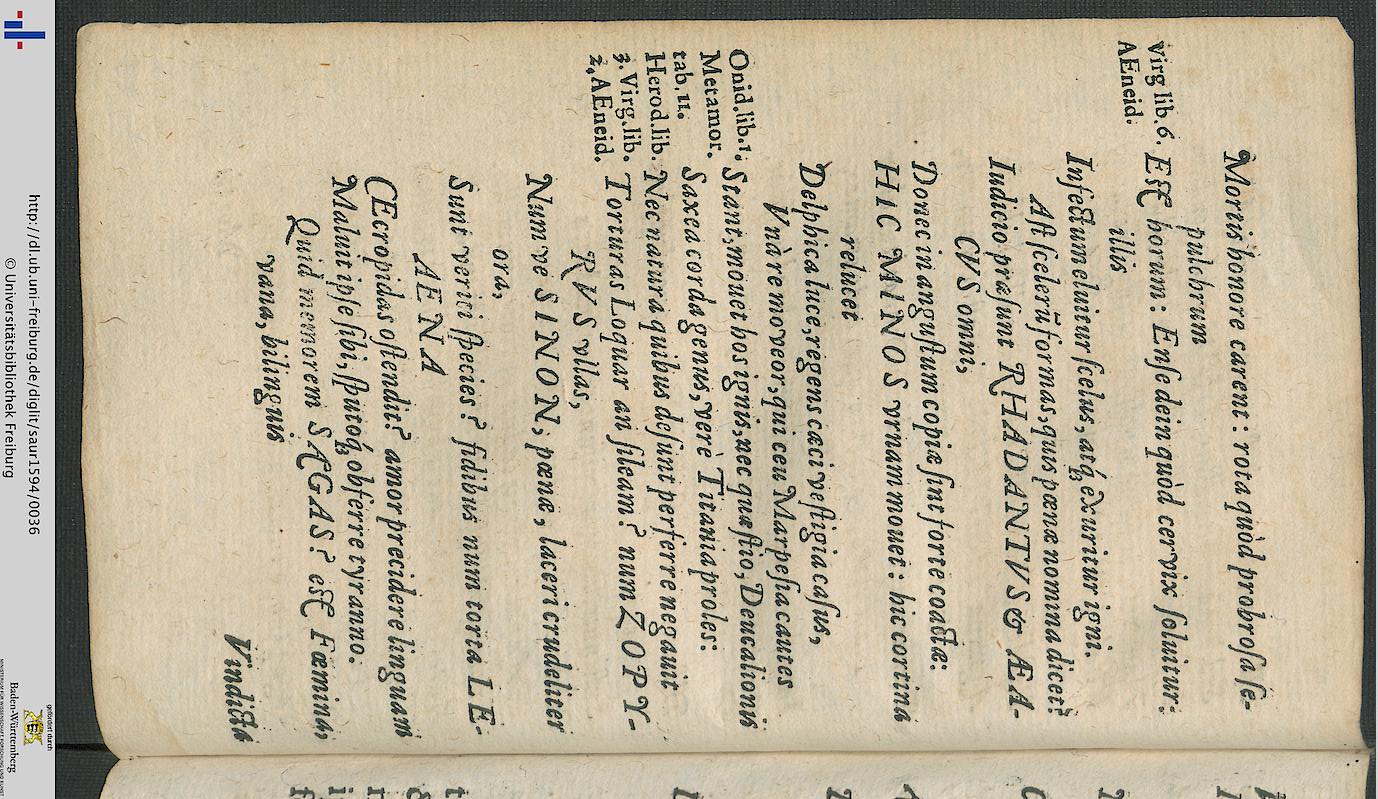 Mortis honore carent: rota quòd probrosa se-
pulchrum
Virg lib. 6. Est horum: Ense dein quòd cervix solvitur:
AEneid.
illis
Infectum eluitur scelus, atq́; exuritur igni.
At scelerũ formas, quis pœnæ nomina dicet?
Iudicio præsunt RHADANTVS & ÆA-
CVS omni,
Donec in angustum copiæ sint forte coactæ:
HIC MINOS vrnam movet: hic cortina
relucet
Delphica luce, regens cæci vestigia casus,
Vnà re moveor, qui ceu Marpesia cautes
Ouid. lib. 1. Stant, movet hos ignis, nec quæstio, Deucalionis
Metamor. Saxea corda genus, verè Titania proles:
tab. 11.
Herod. lib. Nec natura quibus desunt perferre negavit
3. Virg. lib. Torturas Loquar an sileam? num ZOPY-
2, AEneid.
RVS vllas,
Num ve SINON, pœne, laceri crudeliter
ora,
Sunt verití species? fidibus num torta LE-
AENA
CEcropidas ostendit? amor precidere linguam
Maluit ipse sibi, sputoq́; obferre tyranno.
Quid memorem SAGAS? est Fœmina,
vana, bilinguis
Vindicta
http://dl.ub.uni-freiburg.de/diglit/saur1594/0036
© Universitätsbibliothek Freiburg
gefördert durch
Baden-Württemberg
MINISTERIUM FÜR WISSENSCHAFT, FORSCHUNG UND KUNST